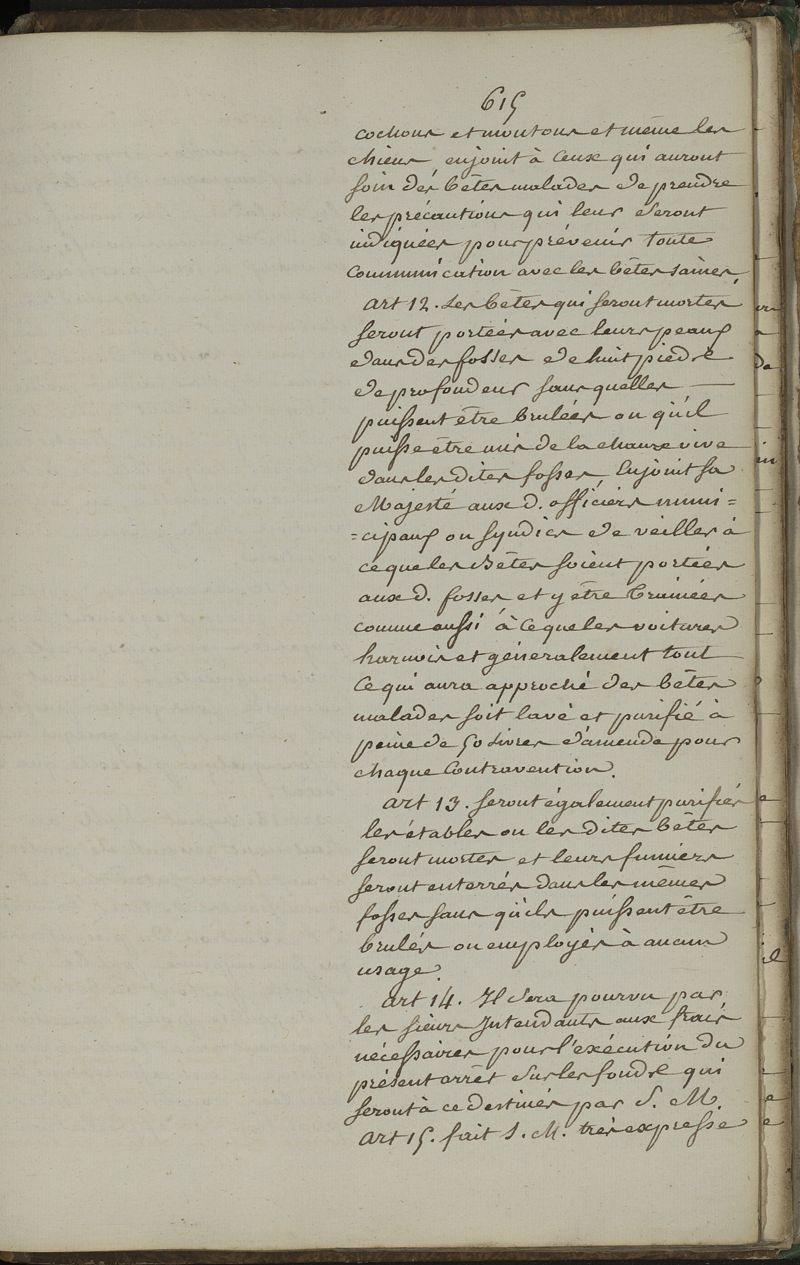 615
cochons et moutons et même les
chiens, enjoint à ceux qui auront
soin des bêtes malades de prendre
les précautions qui leur seront
indiquées pour prévenir toute
communication avec les bêtes saines,
art 12. Les bêtes qui seront mortes
seront portées avec leurs peaux
dans des fosses de huit pieds
de profondeur sans quelles
puissent être brulées ou qu'il
puisse être mis de la chaux vive
dans les dites fosses, Enjoint sa
Majesté aux d. officiers muni=
=cipaux ou syndics de veiller à
ce que les Bêtes soient portées
aux d. fosses et y être trainées
comme aussi à ce que les voitures
harnois et généralement tout
ce qui aura approché des bêtes
malades soit lavé et purifié à
peine de 50 Livres d'amende pour
chaque Contravention.
art 13. seront également purifiés
les étables ou les dites bêtes
seront mortes et leurs fumiers
seront enterrés dans les mêmes
fosses sans qu'ils puissent être
brulés ou employés à aucun
usage.
art 14. Il sera pourvu par
les sieurs Intendants aux frais
nécessaires pour l'exécution du
présent arrêt sur les fonds qui
seront à ce destinés par S. M.
art 15. fait S. M. très expresse